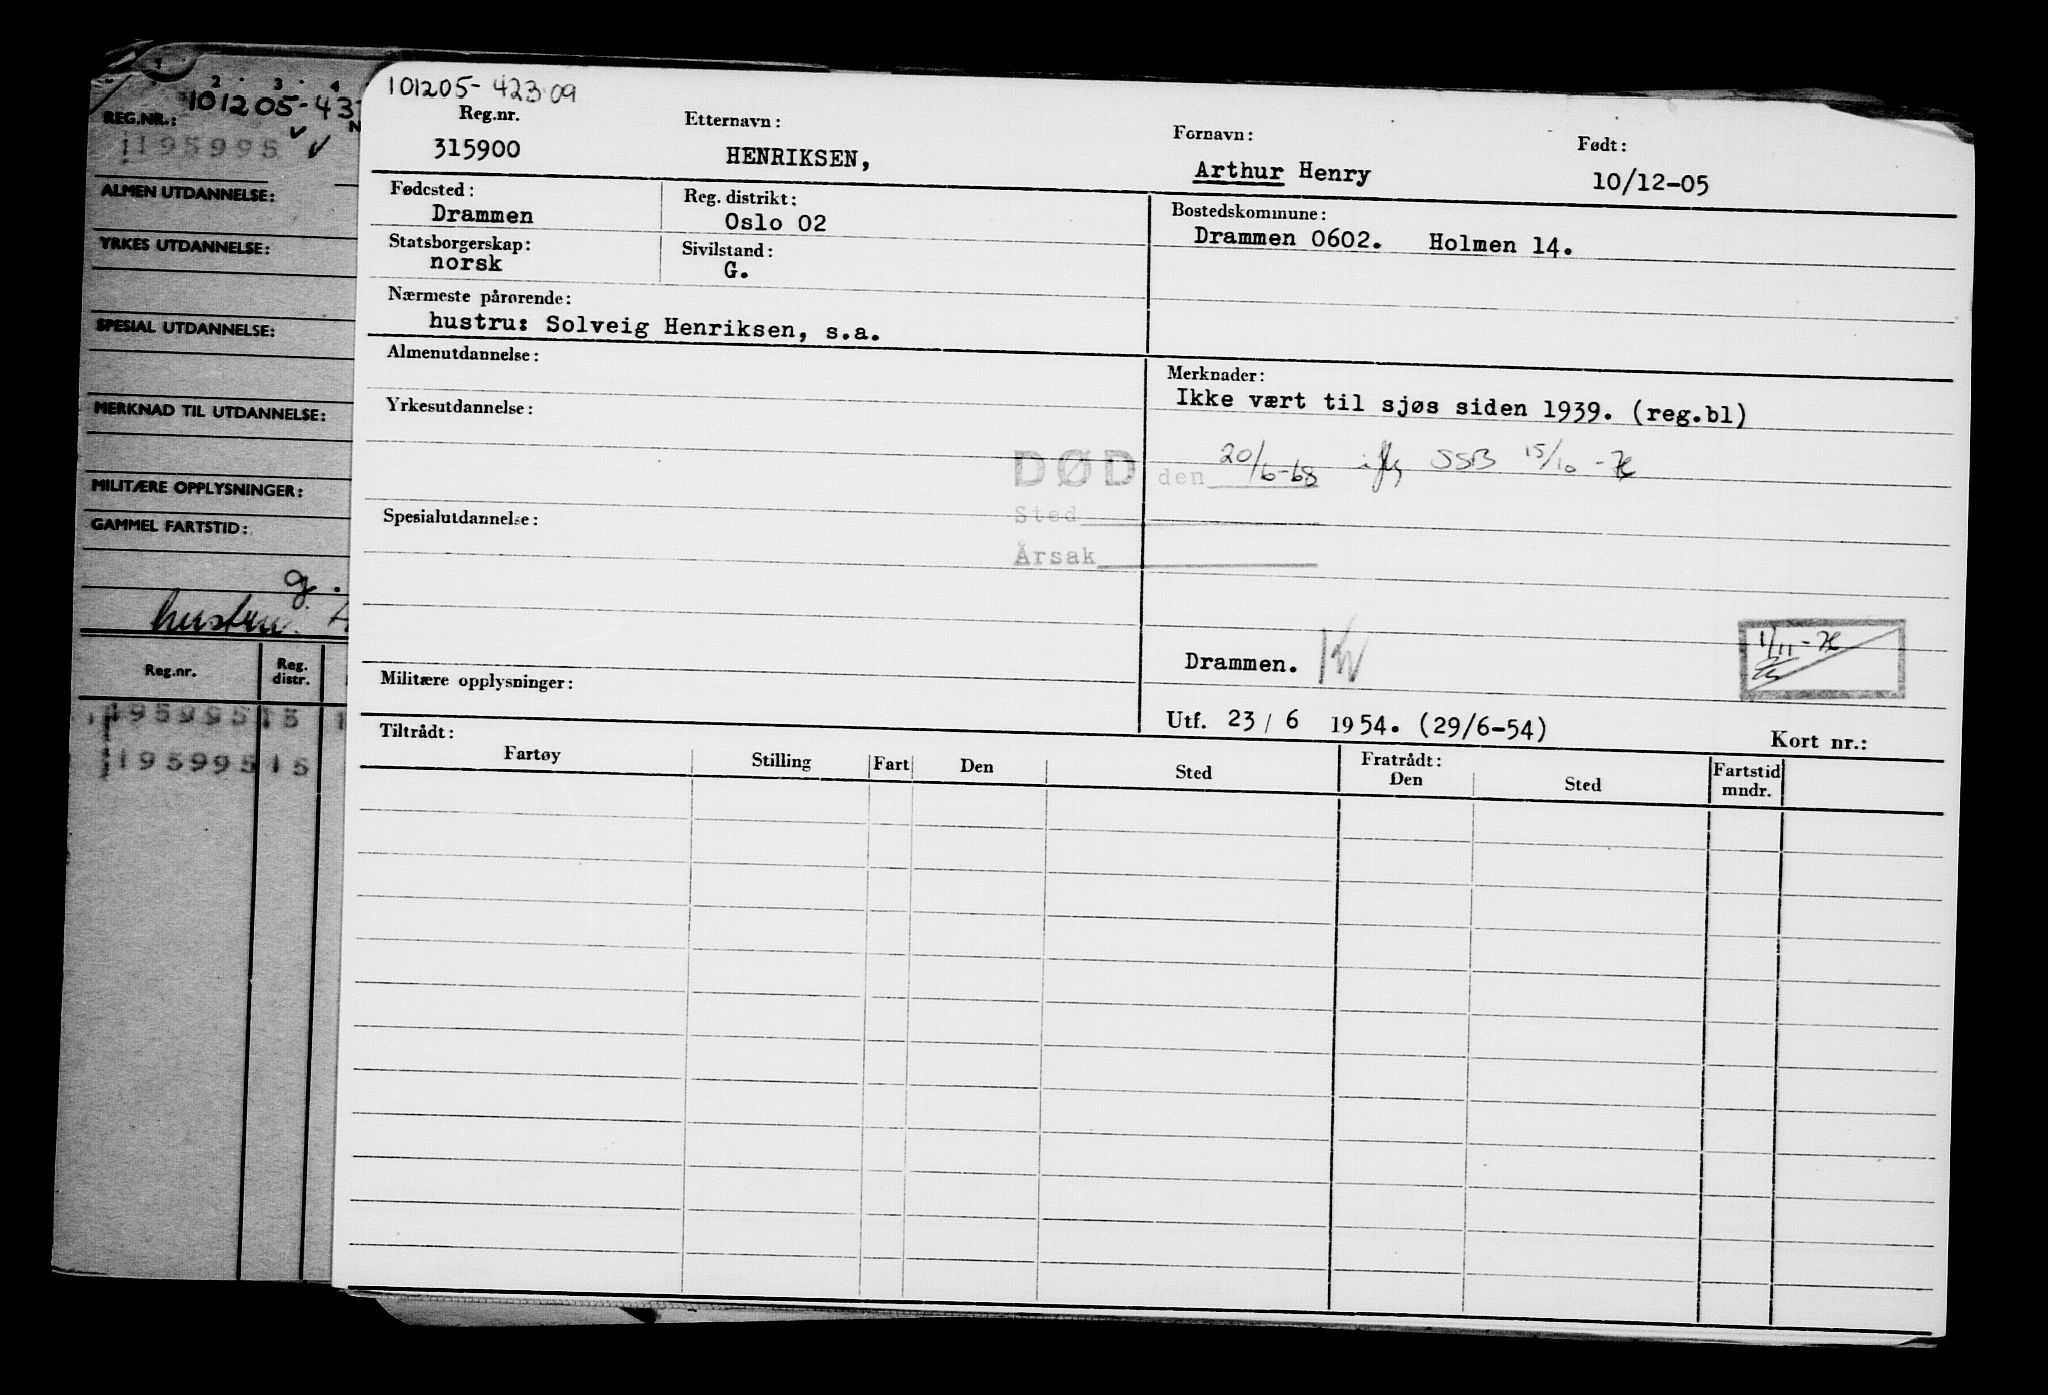 101205-43
REG.NR.:
195995
ALMEN UTDANNELSE:
YRKES UTDANNELSE:
SPESIAL UTDANNELSE:
MERKNAD TIL UTDANNELSE:
MILITÆRE OPPLYSNINGER:
GAMMEL FARTSTID:
g.
hustru
Reg.nr. Reg. distr.
195995 15 1
195995 15
101205-42309
Reg.nr. Etternavn: Fornavn: Født:
315900 HENRIKSEN, Arthur Henry 10/12-05
Fødested: Reg. distrikt: Bostedskommune:
Drammen Oslo 02 Drammen 0602. Holmen 14.
Statsborgerskap: Sivilstand:
norsk G.
Nærmeste pårørende:
hustru: Solveig Henriksen, s.a.
Almenutdannelse: Merknader:
Ikke vært til sjøs siden 1939. (reg.bl)
Yrkesutdannelse:
DØD den 20/6-68 iflg SSB 15/10
Spesialutdannelse: Sted
Årsak
Drammen.
1/11
Militære opplysninger:
Utf. 23/6 1954. (29/6-54) Kort nr.:
Tiltrådt: Fratrådt:
Fartøy Stilling Fart Den Sted Den Sted Fartstid mndr.